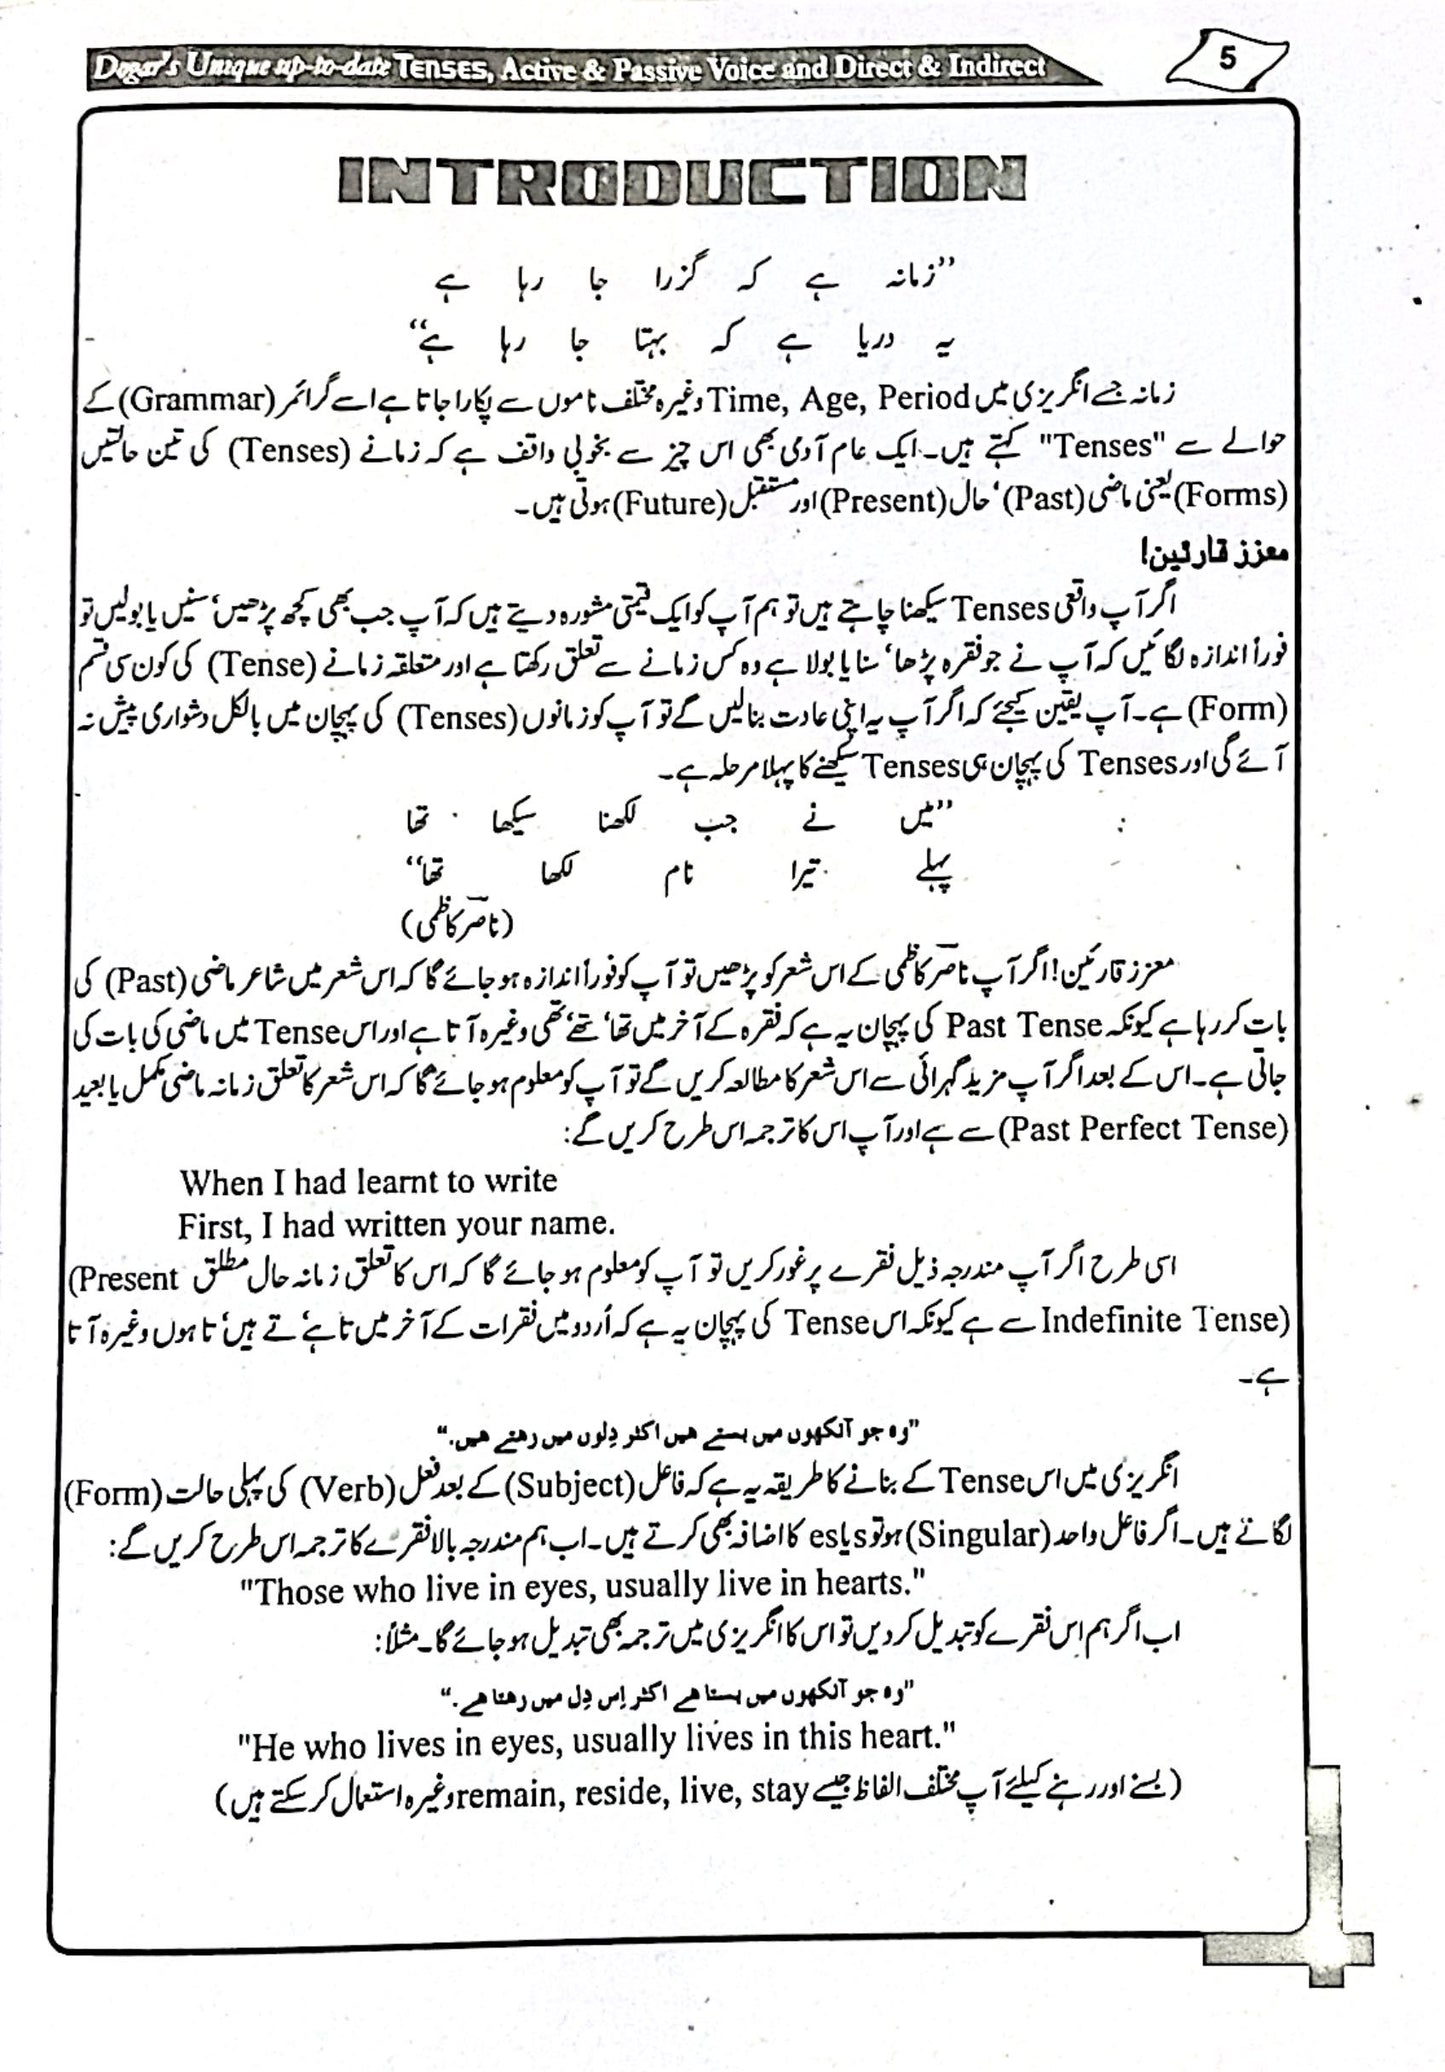 Dogar's Unique up-to-date TENSES, Active & Passive Voice and Direct & Indirect
5
INTRODUCTION
”زمانہ ہے کہ گزرا جا رہا ہے
یہ دریا ہے کہ بہتا جا رہا ہے“
زمانہ جسے انگریزی میں Time, Age, Period وغیرہ مختلف ناموں سے پکارا جاتا ہے اسے گرائمر (Grammar) کے
حوالے سے "Tenses" کہتے ہیں۔ ایک عام آدمی بھی اس چیز سے بخوبی واقف ہے کہ زمانے (Tenses) کی تین حالتیں
(Forms) یعنی ماضی (Past)‘ حال (Present) اور مستقبل (Future) ہوتی ہیں۔
معزز قارئین!
اگر آپ واقعی Tenses سیکھنا چاہتے ہیں تو ہم آپ کو ایک قیمتی مشورہ دیتے ہیں کہ آپ جب بھی کچھ پڑھیں‘ سنیں یا بولیں تو
فوراً اندازہ لگائیں کہ آپ نے جو فقرہ پڑھا‘ سنا یا بولا ہے وہ کس زمانے سے تعلق رکھتا ہے اور متعلقہ زمانے (Tense) کی کون سی قسم
(Form) ہے۔ آپ یقین کیجئے کہ اگر آپ یہ اپنی عادت بنا لیں گے تو آپ کو زمانوں (Tenses) کی پہچان میں بالکل دشواری پیش نہ
آئے گی اور Tenses کی پہچان ہی Tenses سیکھنے کا پہلا مرحلہ ہے۔
”میں نے جب لکھنا سیکھا تھا
پہلے تیرا نام لکھا تھا“
(ناصر کاظمی)
معزز قارئین! اگر آپ ناصر کاظمی کے اس شعر کو پڑھیں تو آپ کو فوراً اندازہ ہو جائے گا کہ اس شعر میں شاعر ماضی (Past) کی
بات کر رہا ہے کیونکہ Past Tense کی پہچان یہ ہے کہ فقرہ کے آخر میں تھا‘ تھے‘ تھی وغیرہ آتا ہے اور اس Tense میں ماضی کی بات کی
جاتی ہے۔ اس کے بعد اگر آپ مزید گہرائی سے اس شعر کا مطالعہ کریں گے تو آپ کو معلوم ہو جائے گا کہ اس شعر کا تعلق زمانہ ماضی مکمل یا بعید
(Past Perfect Tense) سے ہے اور آپ اس کا ترجمہ اس طرح کریں گے:
When I had learnt to write
First, I had written your name.
اسی طرح اگر آپ مندرجہ ذیل فقرے پر غور کریں تو آپ کو معلوم ہو جائے گا کہ اس کا تعلق زمانہ حال مطلق (Present
Indefinite Tense) سے ہے کیونکہ اس Tense کی پہچان یہ ہے کہ اُردو میں فقرات کے آخر میں تا ہے‘ تے ہیں‘ تا ہوں وغیرہ آتا
ہے۔
"وہ جو آنکھوں میں بستے ہیں اکثر دِلوں میں رہتے ہیں۔"
انگریزی میں اس Tense کے بنانے کا طریقہ یہ ہے کہ فاعل (Subject) کے بعد فعل (Verb) کی پہلی حالت (Form)
لگاتے ہیں۔ اگر فاعل واحد (Singular) ہو تو s یا es کا اضافہ بھی کرتے ہیں۔ اب ہم مندرجہ بالا فقرے کا ترجمہ اس طرح کریں گے:
"Those who live in eyes, usually live in hearts."
اب اگر ہم اس فقرے کو تبدیل کر دیں تو اس کا انگریزی میں ترجمہ بھی تبدیل ہو جائے گا۔ مثلاً:
"وہ جو آنکھوں میں بستا ہے اکثر اِس دِل میں رہتا ہے۔"
"He who lives in eyes, usually lives in this heart."
(بسنے اور رہنے کیلئے آپ مختلف الفاظ جیسے remain, reside, live, stay وغیرہ استعمال کر سکتے ہیں)